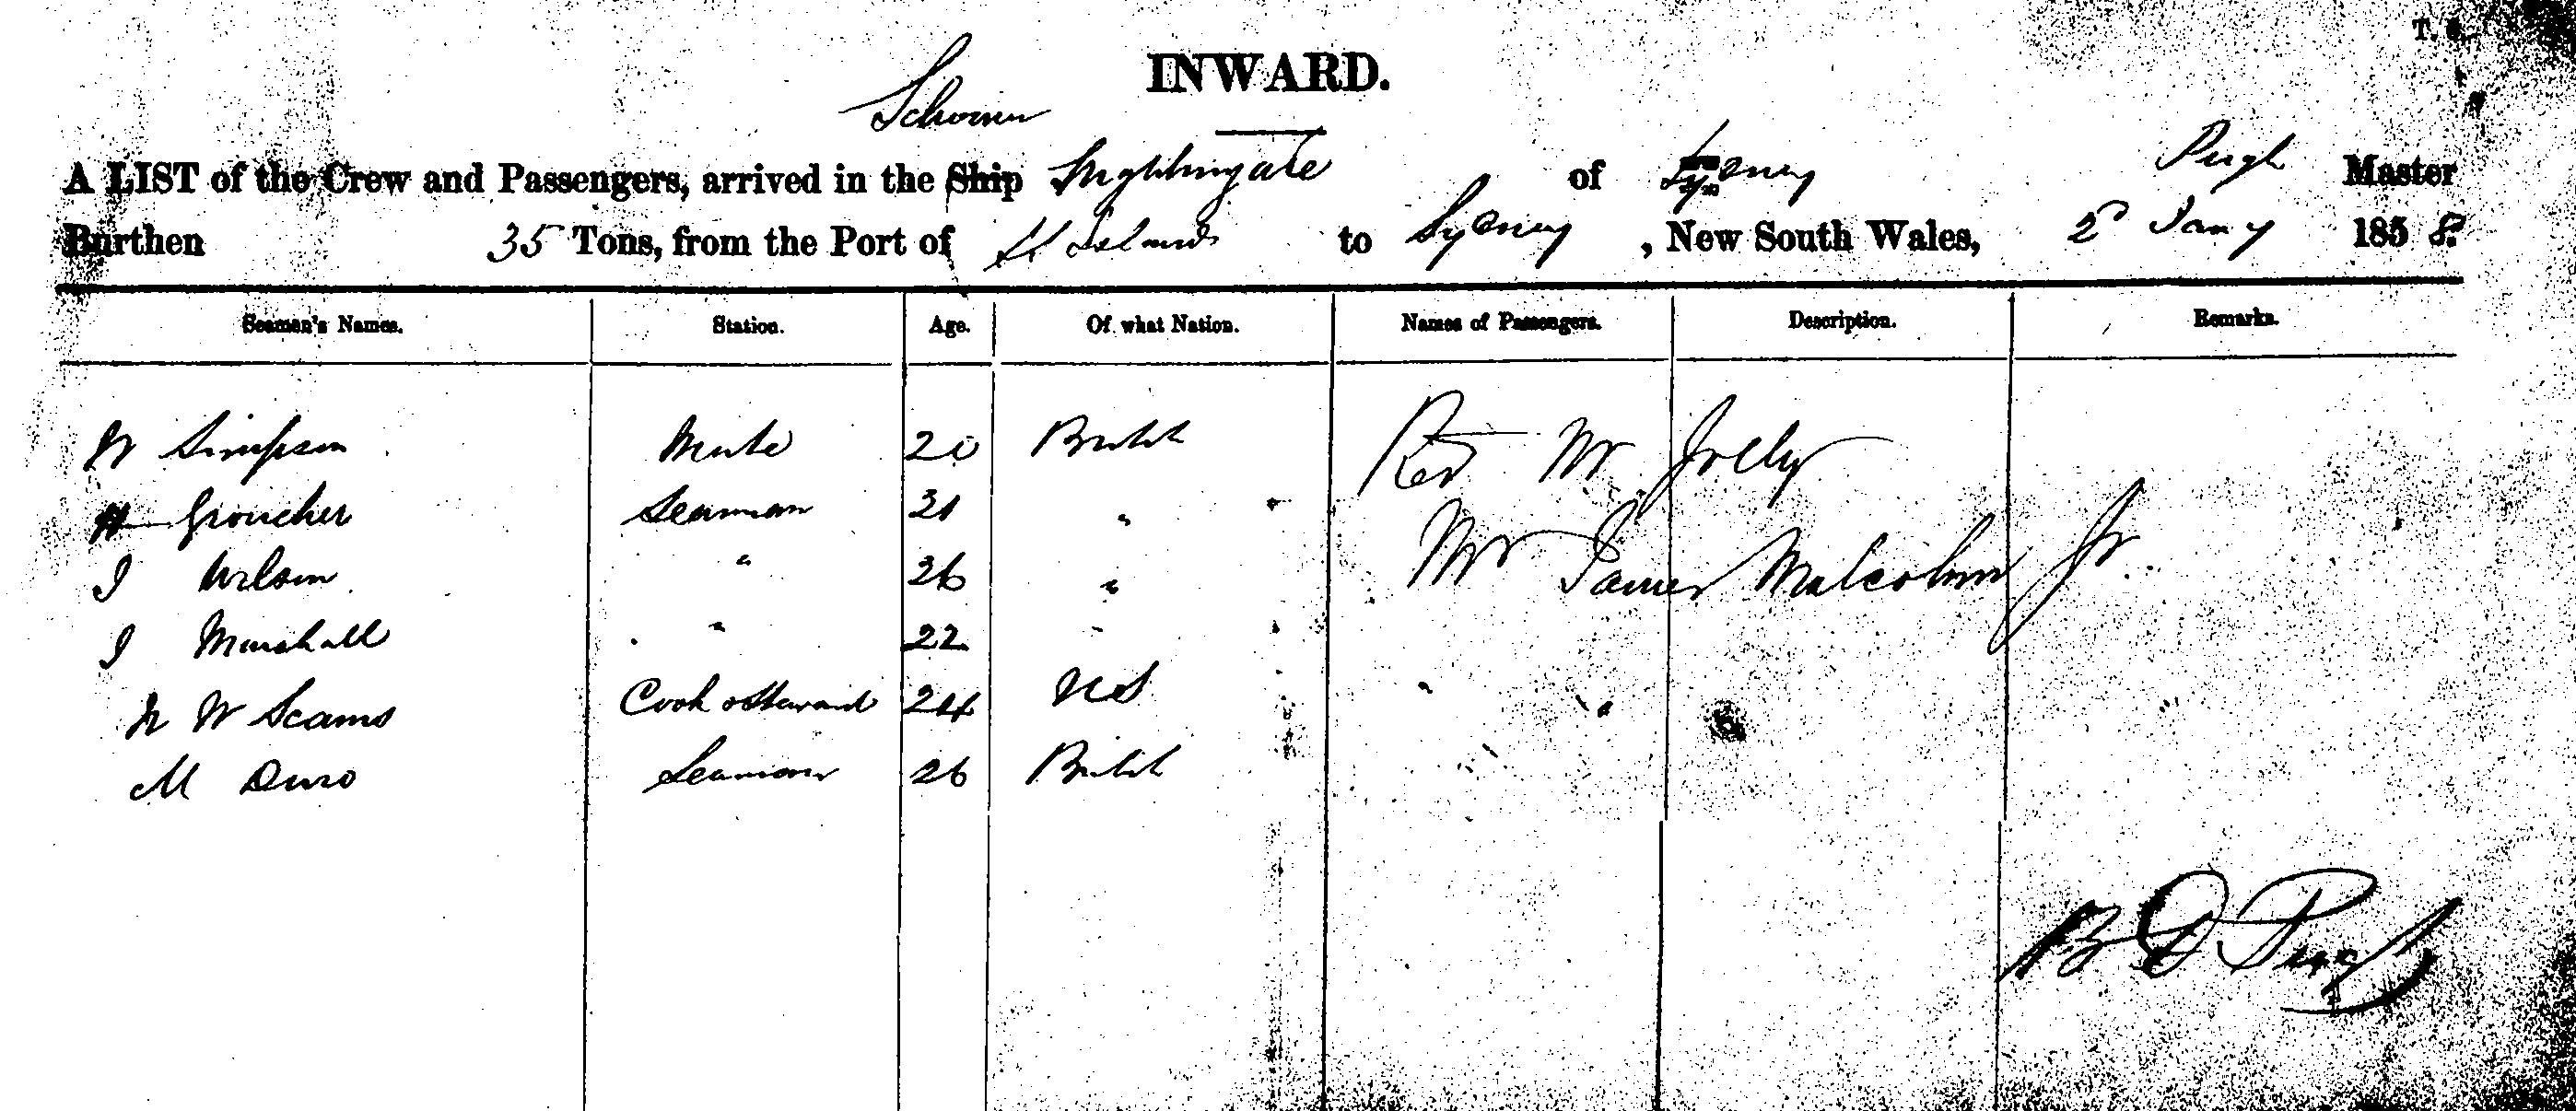 INWARD.
Schooner
A LIST of the Crew and Passengers, arrived in the Ship Nightingale of Sydney Pugh Master
Burthen 35 Tons, from the Port of Islands to Sydney, New South Wales, 2d Jany 1858.
Seamen's Names. Station. Age. Of what Nation. Names of Passengers. Description. Remarks.
W Simpson Mate 20 British Revd Mr Jolly
H Groucher Seaman 31 " Mr James Malcolm Jr.
J Wilson " 36 "
J Marshall " 22 "
W Scams Cook & Steward 24 US
M Duro Seaman 26 British
B D Pugh